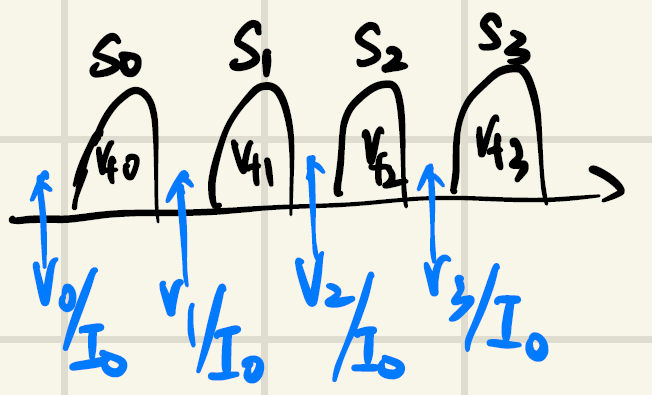 S0 S1 S2 S3
Vf0 Vf1 Vf2 Vf3
V0/I0 V1/I0 V2/I0 V3/I0